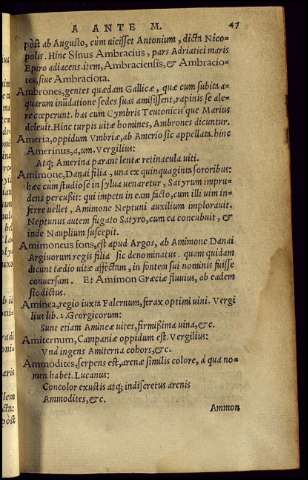 A ANTE M. 47
pòst ab Augusto, cùm uicisset Antonium, dicta Nico-
polis. Hinc Sinus Ambracius, pars Adriatici maris
Epiro adiacens. item, Ambraciensis, & Ambracio-
tes, siue Ambraciota.
Ambrones, gentes quædam Gallicæ, quæ cum subita a-
quarum inũdatione sedes suas amisissent, rapinis se ale-
re cœperunt. has cum Cymbris Teutonicis que Marius
deleuit. Hinc turpis uitæ homines, Ambrones dicuntur.
Ameria, oppidum Vmbriæ, ab Amerio sic appellatũ. hinc
Amerinus, a, um. Vergilius:
Atq; Amerina parant lentæ retinacula uiti.
Amimone, Danai filia, una ex quinquaginta sororibus:
hæc cum studiose in sylua uenaretur, Satyrum impru-
dens percussit: qui impetu in eam facto, cum illi uim in-
ferre uellet, Amimone Neptuni auxilium implorauit.
Neptunus autem fugato Satyro, cum ea concubuit, &
inde Nauplium suscepit.
Amimoneus fons, est apud Argos, ab Amimone Danai
Argiuorum regis filia sic denominatus. quem quidam
dicunt tædio uitæ affectum, in fontem sui nominis fuisse
conuersam. Et Amimon Græciæ fluuius, ab eadem
sic dictus.
Aminea, regio iuxta Falernum, ferax optimi uini. Vergi
lius lib. 2. Georgicorum:
Sunt etiam Amineæ uites, firmissima uina, &c.
Amiternum, Campaniæ oppidum est. Vergilius:
Vnà ingens Amiterna cohors, &c.
Ammodites, serpens est, arenæ similis colore, à qua no-
men habet. Lucanus:
Concolor exustis atq; indiscretus arenis
Ammodites, &c.
Ammon